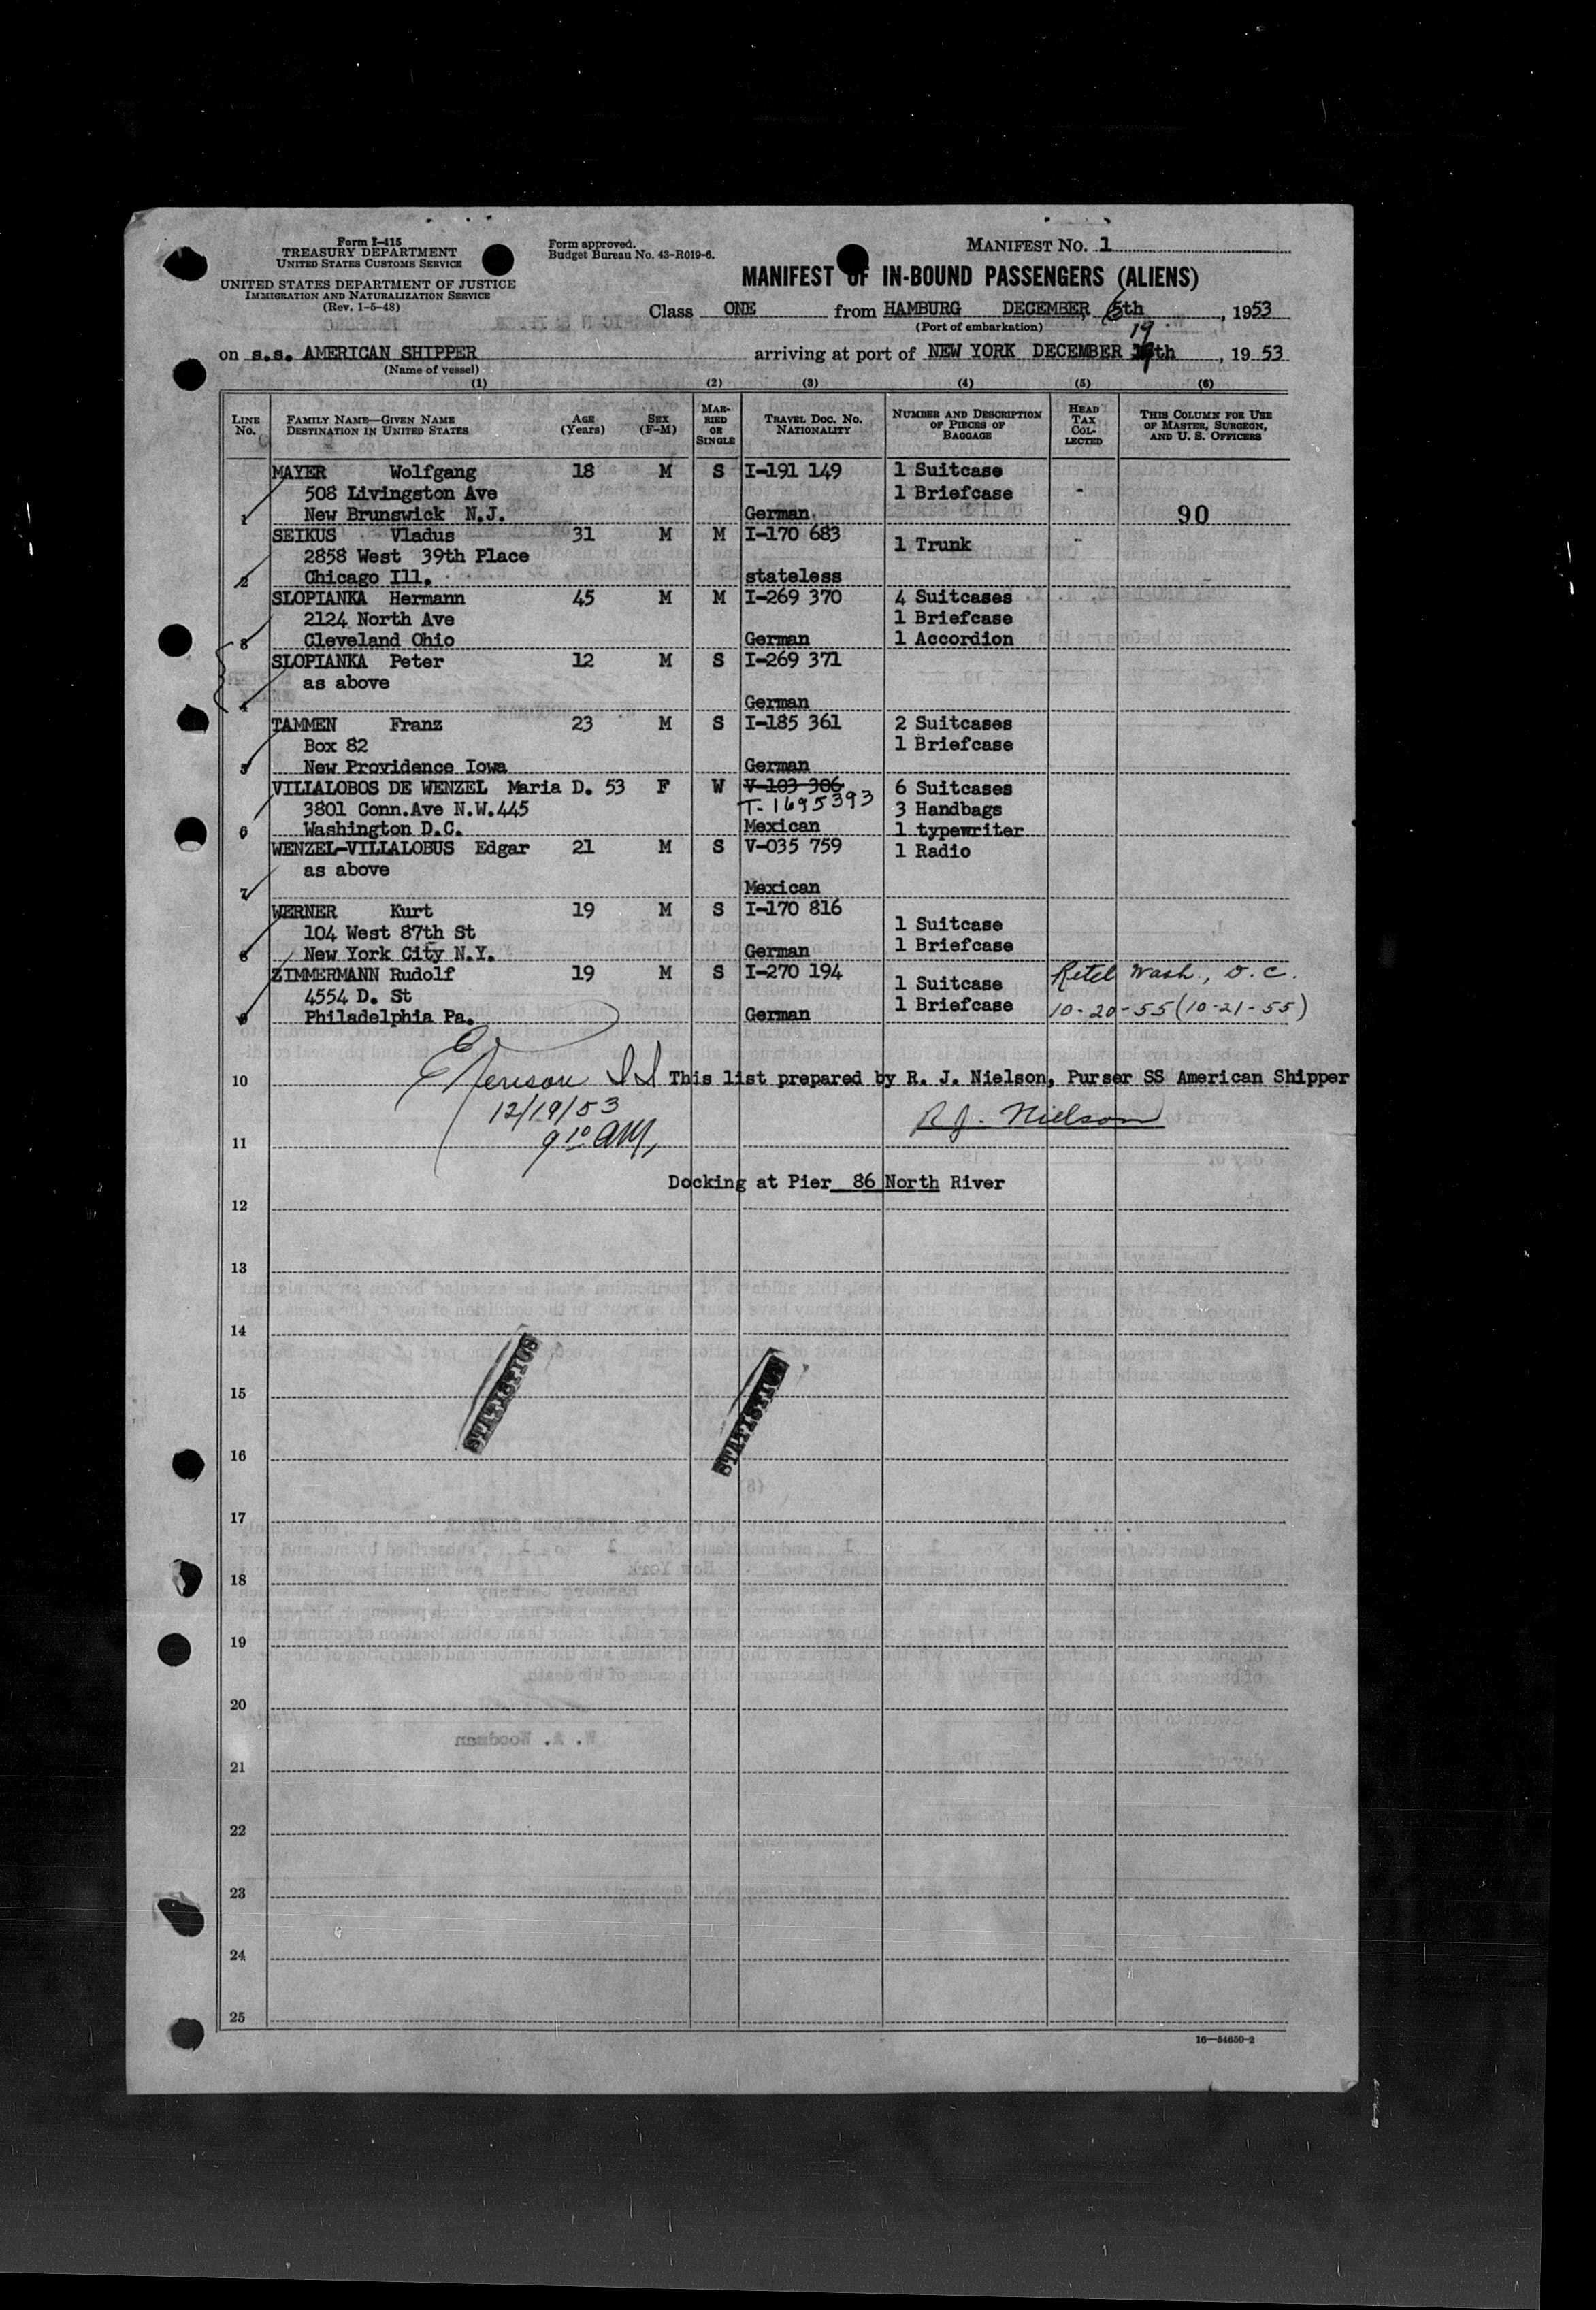 Form I-415
TREASURY DEPARTMENT
UNITED STATES CUSTOMS SERVICE
UNITED STATES DEPARTMENT OF JUSTICE
IMMIGRATION AND NATURALIZATION SERVICE
(Rev. 1-5-48)
Form approved.
Budget Bureau No. 43-R019-6.
MANIFEST NO. 1
MANIFEST OF IN-BOUND PASSENGERS (ALIENS)
Class ONE from HAMBURG DECEMBER 5th, 1953
(Port of embarkation)
19
on s.s. AMERICAN SHIPPER arriving at port of NEW YORK DECEMBER th, 1953
(Name of vessel)
(1) (2) (3) (4) (5) (6)
LINE No. FAMILY NAME—GIVEN NAME DESTINATION IN UNITED STATES AGE (Years) SEX (F-M) MARRIED OR SINGLE TRAVEL DOC. NO. NATIONALITY NUMBER AND DESCRIPTION OF PIECES OF BAGGAGE HEAD TAX COLLECTED THIS COLUMN FOR USE OF MASTER, SURGEON, AND U. S. OFFICERS
MAYER Wolfgang 18 M S I-191 149 1 Suitcase
508 Livingston Ave 1 Briefcase -
1 New Brunswick N.J. German 90
SEIKUS Vladus 31 M M I-170 683 -
2858 West 39th Place 1 Trunk
2 Chicago Ill. stateless
SLOPIANKA Hermann 45 M M I-269 370 4 Suitcases
2124 North Ave 1 Briefcase
3 Cleveland Ohio German 1 Accordion
SLOPIANKA Peter 12 M S I-269 371
as above
4 German
TAMMEN Franz 23 M S I-185 361 2 Suitcases
Box 82 1 Briefcase
5 New Providence Iowa German
VILLALOBOS DE WENZEL Maria D. 53 F W V-103 306 6 Suitcases
3801 Conn.Ave N.W.445 T-1695393 3 Handbags
6 Washington D.C. Mexican 1 typewriter
WENZEL-VILLALOBUS Edgar 21 M S V-035 759 1 Radio
as above
7 Mexican
WERNER Kurt 19 M S I-170 816
104 West 87th St 1 Suitcase
8 New York City N.Y. German 1 Briefcase
ZIMMERMANN Rudolf 19 M S I-270 194 1 Suitcase Retel Wash., D.C.
4554 D. St 1 Briefcase 10-20-55 (10-21-55)
9 Philadelphia Pa. German
10 This list prepared by R. J. Nielson, Purser SS American Shipper
12/19/53
R.J. Nielson
9 10 AM,
11
Docking at Pier 86 North River
12
13
14
STATISTICS
STATISTICS
15
16
17
18
19
20
21
22
23
24
25
16—54650-2